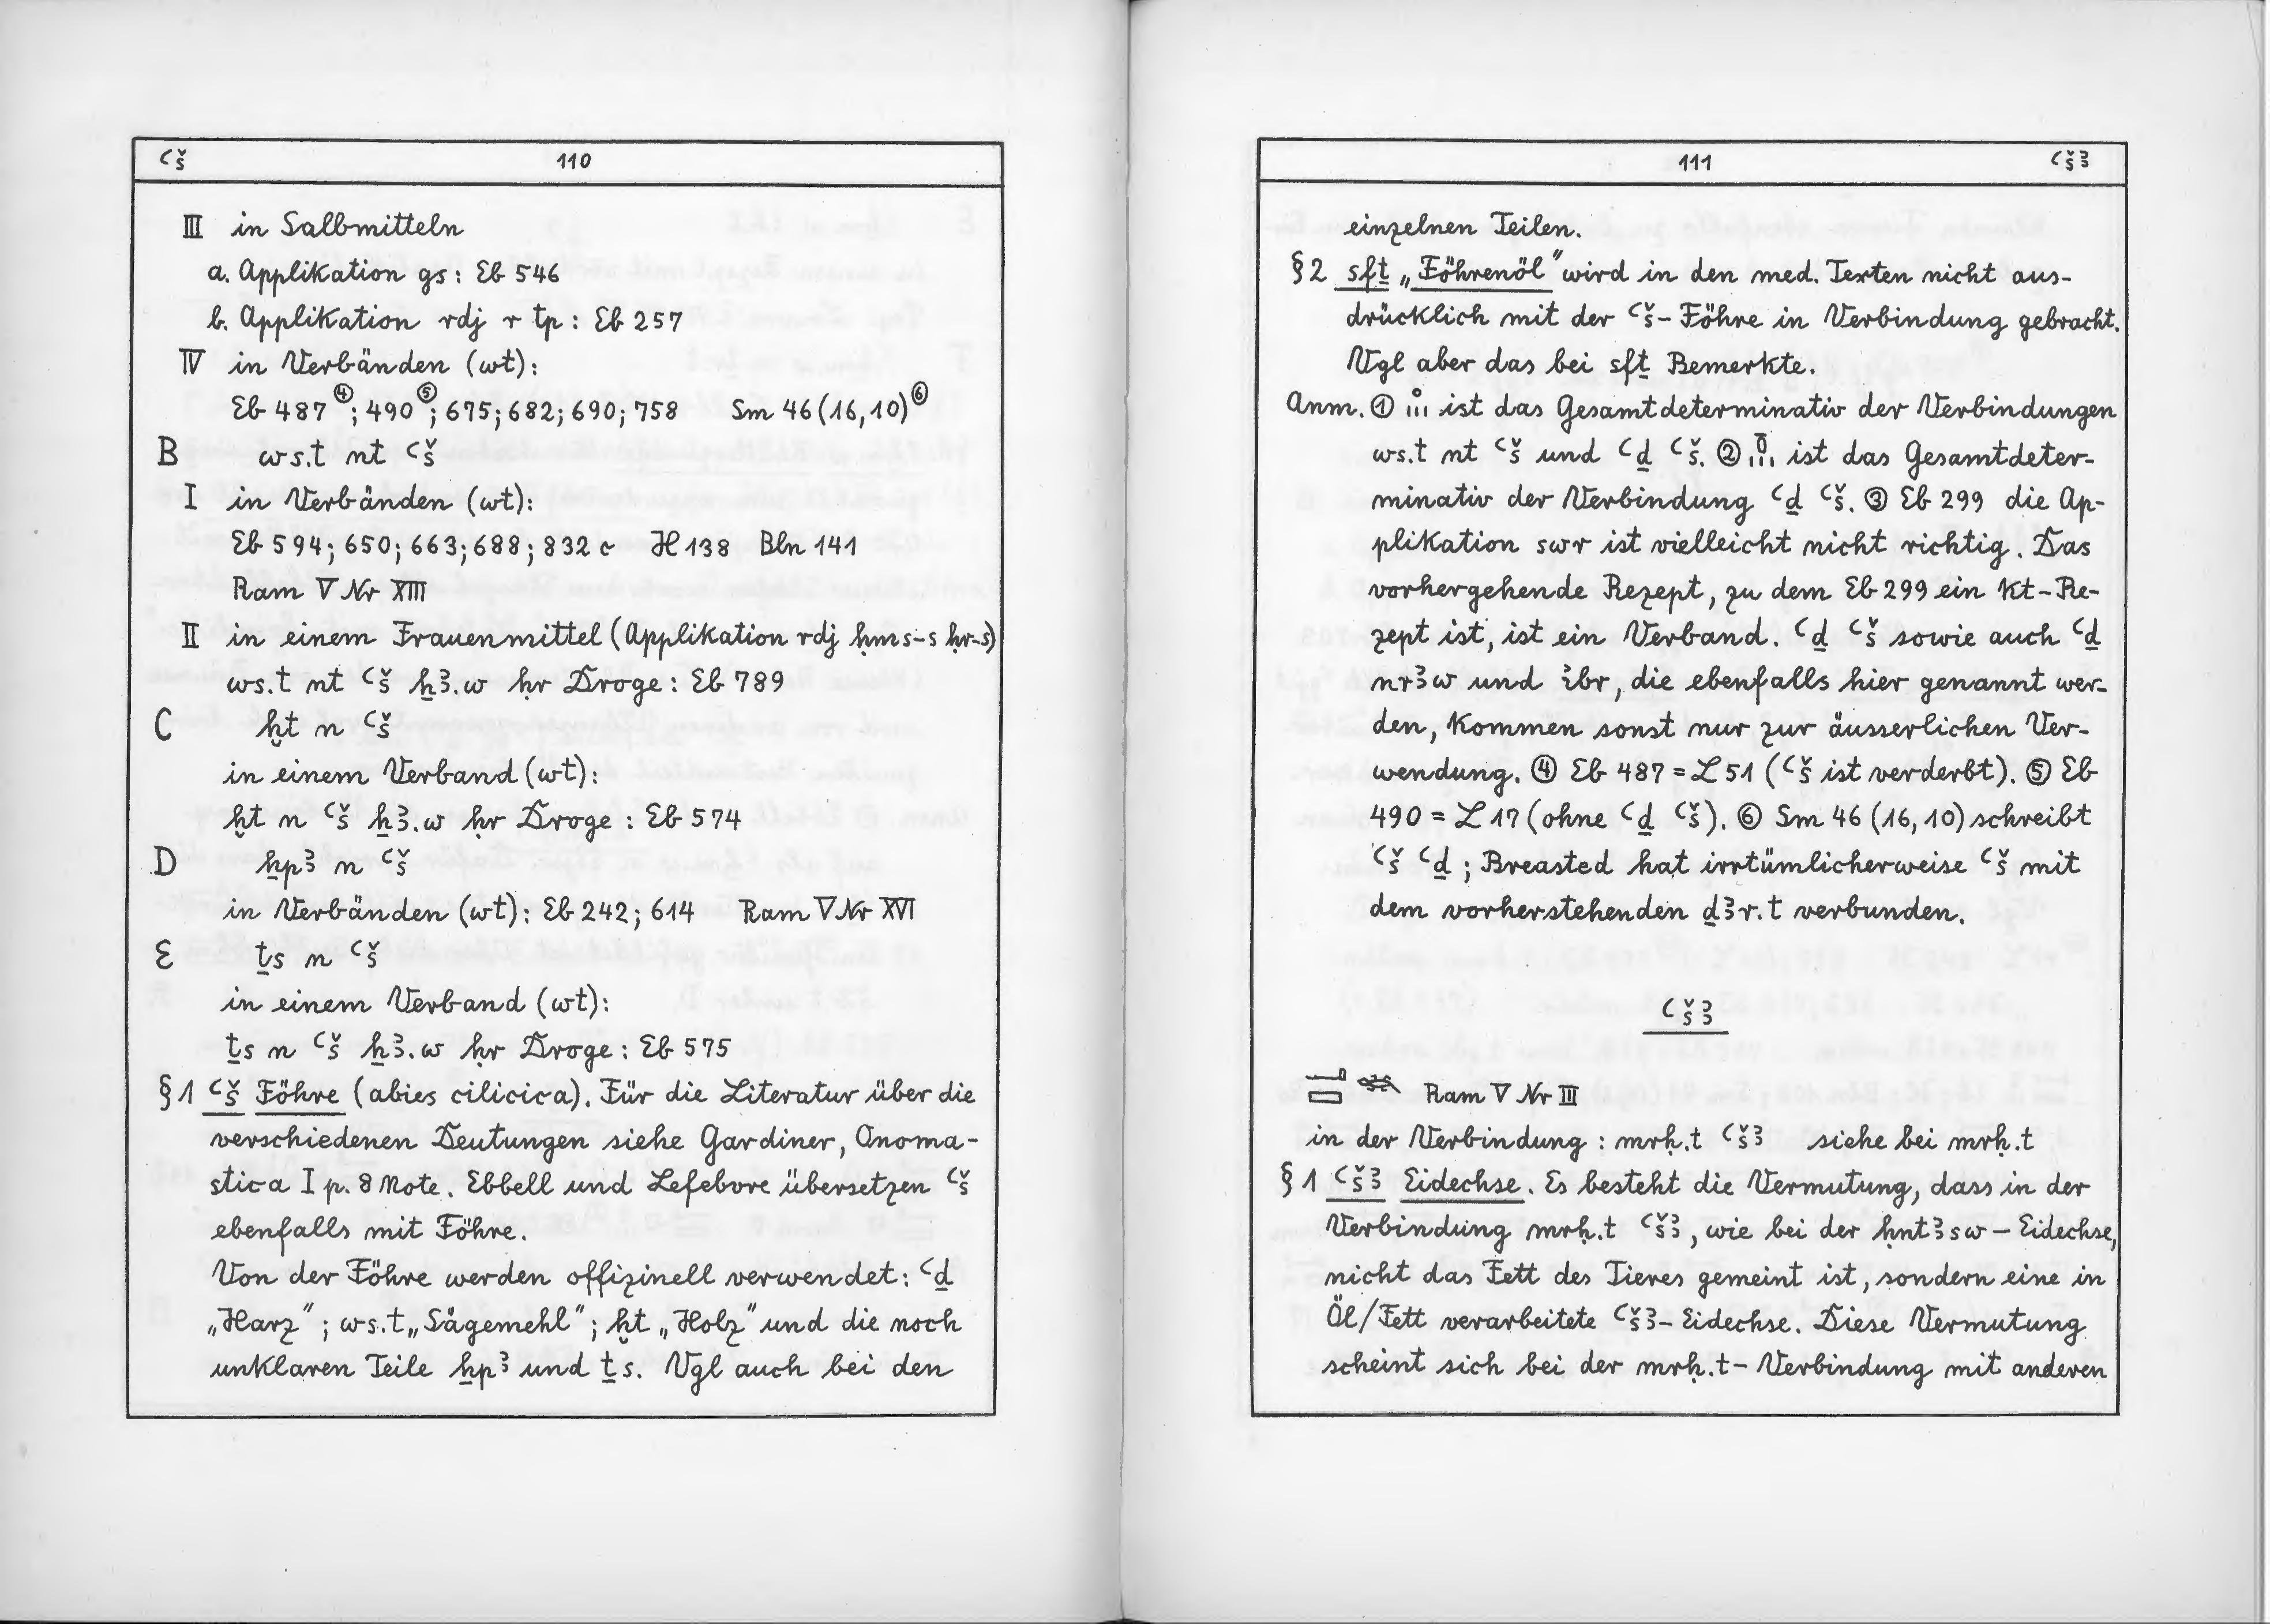 ꜥš 110
III in Salbmitteln
a. Applikation gs: Eb 546
b. Applikation rdj r tp: Eb 257
IV in Verbänden (wt):
Eb 487④; 490⑤; 675; 682; 690; 758 Sm 46 (16,10)⑥
B ws.t nt ꜥš
I in Verbänden (wt):
Eb 594; 650; 663; 688; 832 c H 138 Bln 141
Ram V Nr XIII
II in einem Frauenmittel (Applikation rdj ḥms-s ḥr-s)
ws.t nt ꜥš ẖꜣ.w ḥr Droge: Eb 789
C ḫt n ꜥš
in einem Verband (wt):
ḫt n ꜥš ẖꜣ.w ḥr Droge: Eb 574
D ẖpꜣ n ꜥš
in Verbänden (wt): Eb 242; 614 Ram V Nr XVI
E ṯs n ꜥš
in einem Verband (wt):
ṯs n ꜥš ẖꜣ.w ḥr Droge: Eb 575
§1 ꜥš Föhre (abies cilicica). Für die Literatur über die
verschiedenen Deutungen siehe Gardiner, Onoma-
stica I p. 8 Note. Ebbell und Lefebvre übersetzen ꜥš
ebenfalls mit Föhre.
Von der Föhre werden offizinell verwendet: ꜥḏ
„Harz"; ws.t „Sägemehl"; ḫt „Holz" und die noch
unklaren Teile ẖpꜣ und ṯs. Vgl auch bei den
111 ꜥšꜣ
einzelnen Teilen.
§2 sfṯ „Föhrenöl" wird in den med. Texten nicht aus-
drücklich mit der ꜥš-Föhre in Verbindung gebracht.
Vgl aber das bei sfṯ Bemerkte.
Anm. ① ist das Gesamtdeterminativ der Verbindungen
ws.t nt ꜥš und ꜥḏ ꜥš. ② ist das Gesamtdeter-
minativ der Verbindung ꜥḏ ꜥš. ③ Eb 299 die Ap-
plikation swr ist vielleicht nicht richtig. Das
vorhergehende Rezept, zu dem Eb 299 ein kt-Re-
zept ist, ist ein Verband. ꜥḏ ꜥš sowie auch ꜥḏ
nrꜣw und ꞽbr, die ebenfalls hier genannt wer-
den, kommen sonst nur zur äusserlichen Ver-
wendung. ④ Eb 487 = L 51 (ꜥš ist verderbt). ⑤ Eb
490 = L 17 (ohne ꜥḏ ꜥš). ⑥ Sm 46 (16,10) schreibt
ꜥš ꜥḏ; Breasted hat irrtümlicherweise ꜥš mit
dem vorherstehenden ḏꜣr.t verbunden.
ꜥšꜣ
Ram V Nr III
in der Verbindung: mrḥ.t ꜥšꜣ siehe bei mrḥ.t
§1 ꜥšꜣ Eidechse. Es besteht die Vermutung, dass in der
Verbindung mrḥ.t ꜥšꜣ, wie bei der ḥntꜣsw-Eidechse,
nicht das Fett des Tieres gemeint ist, sondern eine in
Öl/Fett verarbeitete ꜥšꜣ-Eidechse. Diese Vermutung
scheint sich bei der mrḥ.t-Verbindung mit anderen